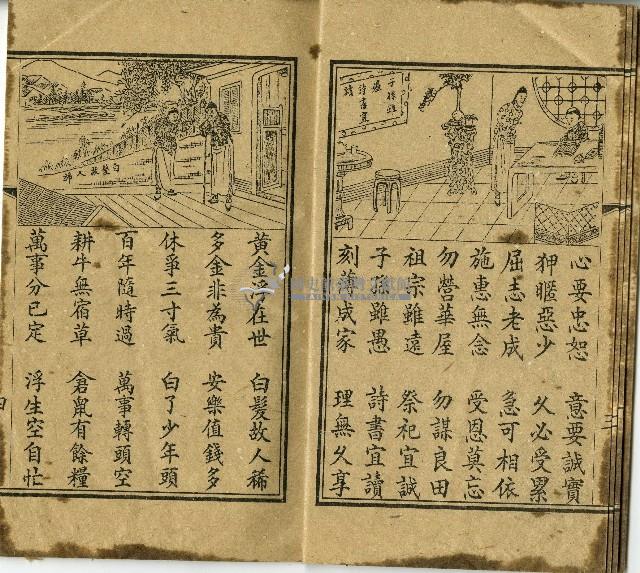 子孫雖
愚
詩書宜
讀
心要忠恕　意要誠實
狎暱惡少　久必受累
屈志老成　急可相依
施惠無念　受恩莫忘
勿營華屋　勿謀良田
祖宗雖遠　祭祀宜誠
子孫雖愚　詩書宜讀
刻薄成家　理無久享
白髮故人稀
黃金浮在世　白髮故人稀
多金非為貴　安樂值錢多
休爭三寸氣　白了少年頭
百年隨時過　萬事轉頭空
耕牛無宿草　倉鼠有餘糧
萬事分已定　浮生空自忙